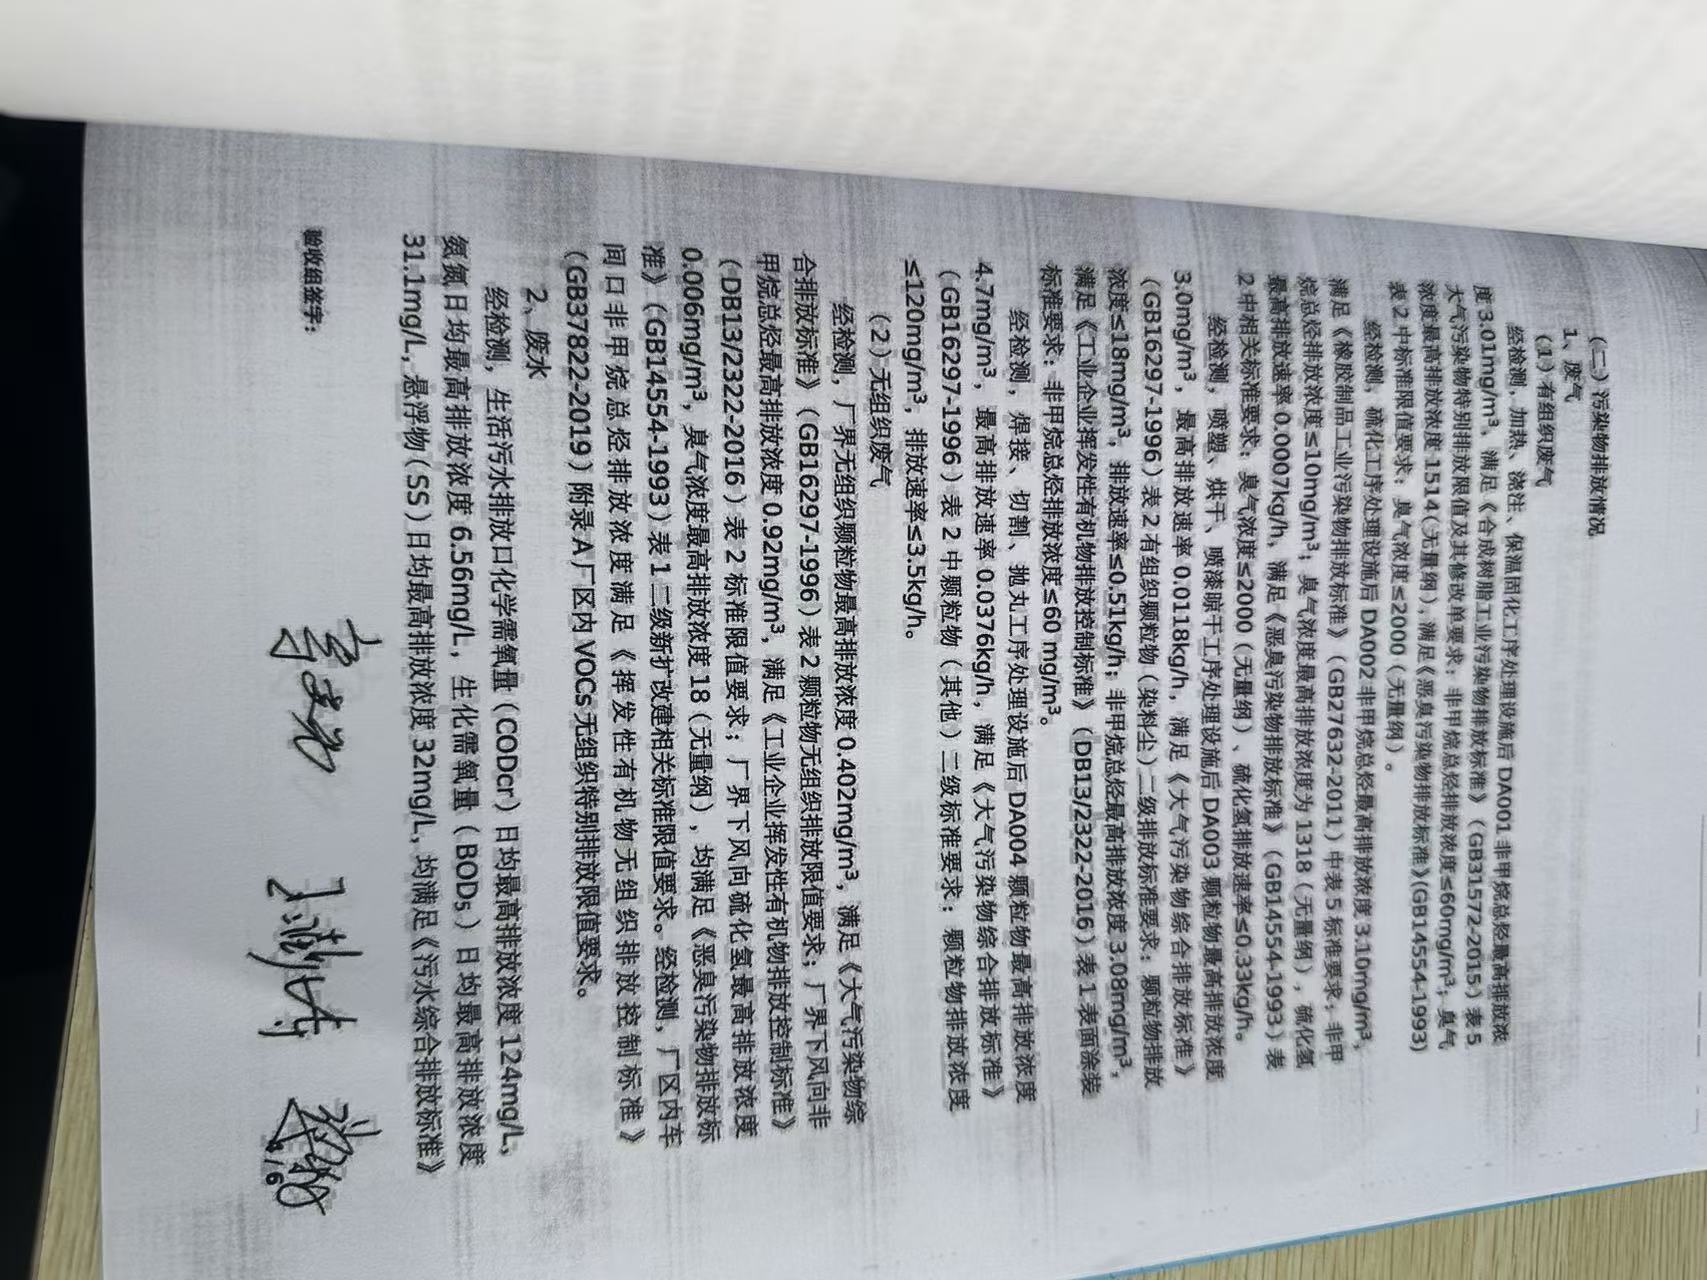 （二）污染物排放情况
1、废气
（1）有组织废气
经检测，加热、浇注、保温固化工序处理设施后 DA001 非甲烷总烃最高排放浓
度 3.01mg/m³，满足《合成树脂工业污染物排放标准》（GB31572-2015）表 5
大气污染物特别排放限值及其修改单要求：非甲烷总烃排放浓度≤60mg/m³；臭气
浓度最高排放浓度 1514（无量纲），满足《恶臭污染物排放标准》（GB14554-1993）
表 2 中标准限值要求：臭气浓度≤2000（无量纲）。
经检测，硫化工序处理设施后 DA002 非甲烷总烃最高排放浓度 3.10mg/m³，
满足《橡胶制品工业污染物排放标准》（GB27632-2011）中表 5 标准要求：非甲
烷总烃排放浓度≤10mg/m³；臭气浓度最高排放浓度为 1318（无量纲），硫化氢
最高排放速率 0.0007kg/h，满足《恶臭污染物排放标准》（GB14554-1993）表
2 中相关标准要求：臭气浓度≤2000（无量纲）、硫化氢排放速率≤0.33kg/h。
经检测，喷塑、烘干、喷漆晾干工序处理设施后 DA003 颗粒物最高排放浓度
3.0mg/m³，最高排放速率 0.0118kg/h，满足《大气污染物综合排放标准》
（GB16297-1996）表 2 有组织颗粒物（染料尘）二级排放标准要求：颗粒物排放
浓度≤18mg/m³，排放速率≤0.51kg/h；非甲烷总烃最高排放浓度 3.08mg/m³，
满足《工业企业挥发性有机物排放控制标准》（DB13/2322-2016）表 1 表面涂装
标准要求：非甲烷总烃排放浓度≤60 mg/m³。
经检测，焊接、切割、抛丸工序处理设施后 DA004 颗粒物最高排放浓度
4.7mg/m³，最高排放速率 0.0376kg/h，满足《大气污染物综合排放标准》
（GB16297-1996）表 2 中颗粒物（其他）二级标准要求：颗粒物排放浓度
≤120mg/m³，排放速率≤3.5kg/h。
（2）无组织废气
经检测，厂界无组织颗粒物最高排放浓度 0.402mg/m³，满足《大气污染物综
合排放标准》（GB16297-1996）表 2 颗粒物无组织排放限值要求；厂界下风向非
甲烷总烃最高排放浓度 0.92mg/m³，满足《工业企业挥发性有机物排放控制标准》
（DB13/2322-2016）表 2 标准限值要求；厂界下风向硫化氢最高排放浓度
0.006mg/m³，臭气浓度最高排放浓度 18（无量纲），均满足《恶臭污染物排放标
准》（GB14554-1993）表 1 二级新扩改建相关标准限值要求。经检测，厂区内车
间口非甲烷总烃排放浓度满足《挥发性有机物无组织排放控制标准》
（GB37822-2019）附录 A 厂区内 VOCs 无组织特别排放限值要求。
2、废水
经检测，生活污水排放口化学需氧量（CODcr）日均最高排放浓度 124mg/L，
氨氮日均最高排放浓度 6.56mg/L，生化需氧量（BOD₅）日均最高排放浓度
31.1mg/L，悬浮物（SS）日均最高排放浓度 32mg/L，均满足《污水综合排放标准》
验收组签字：